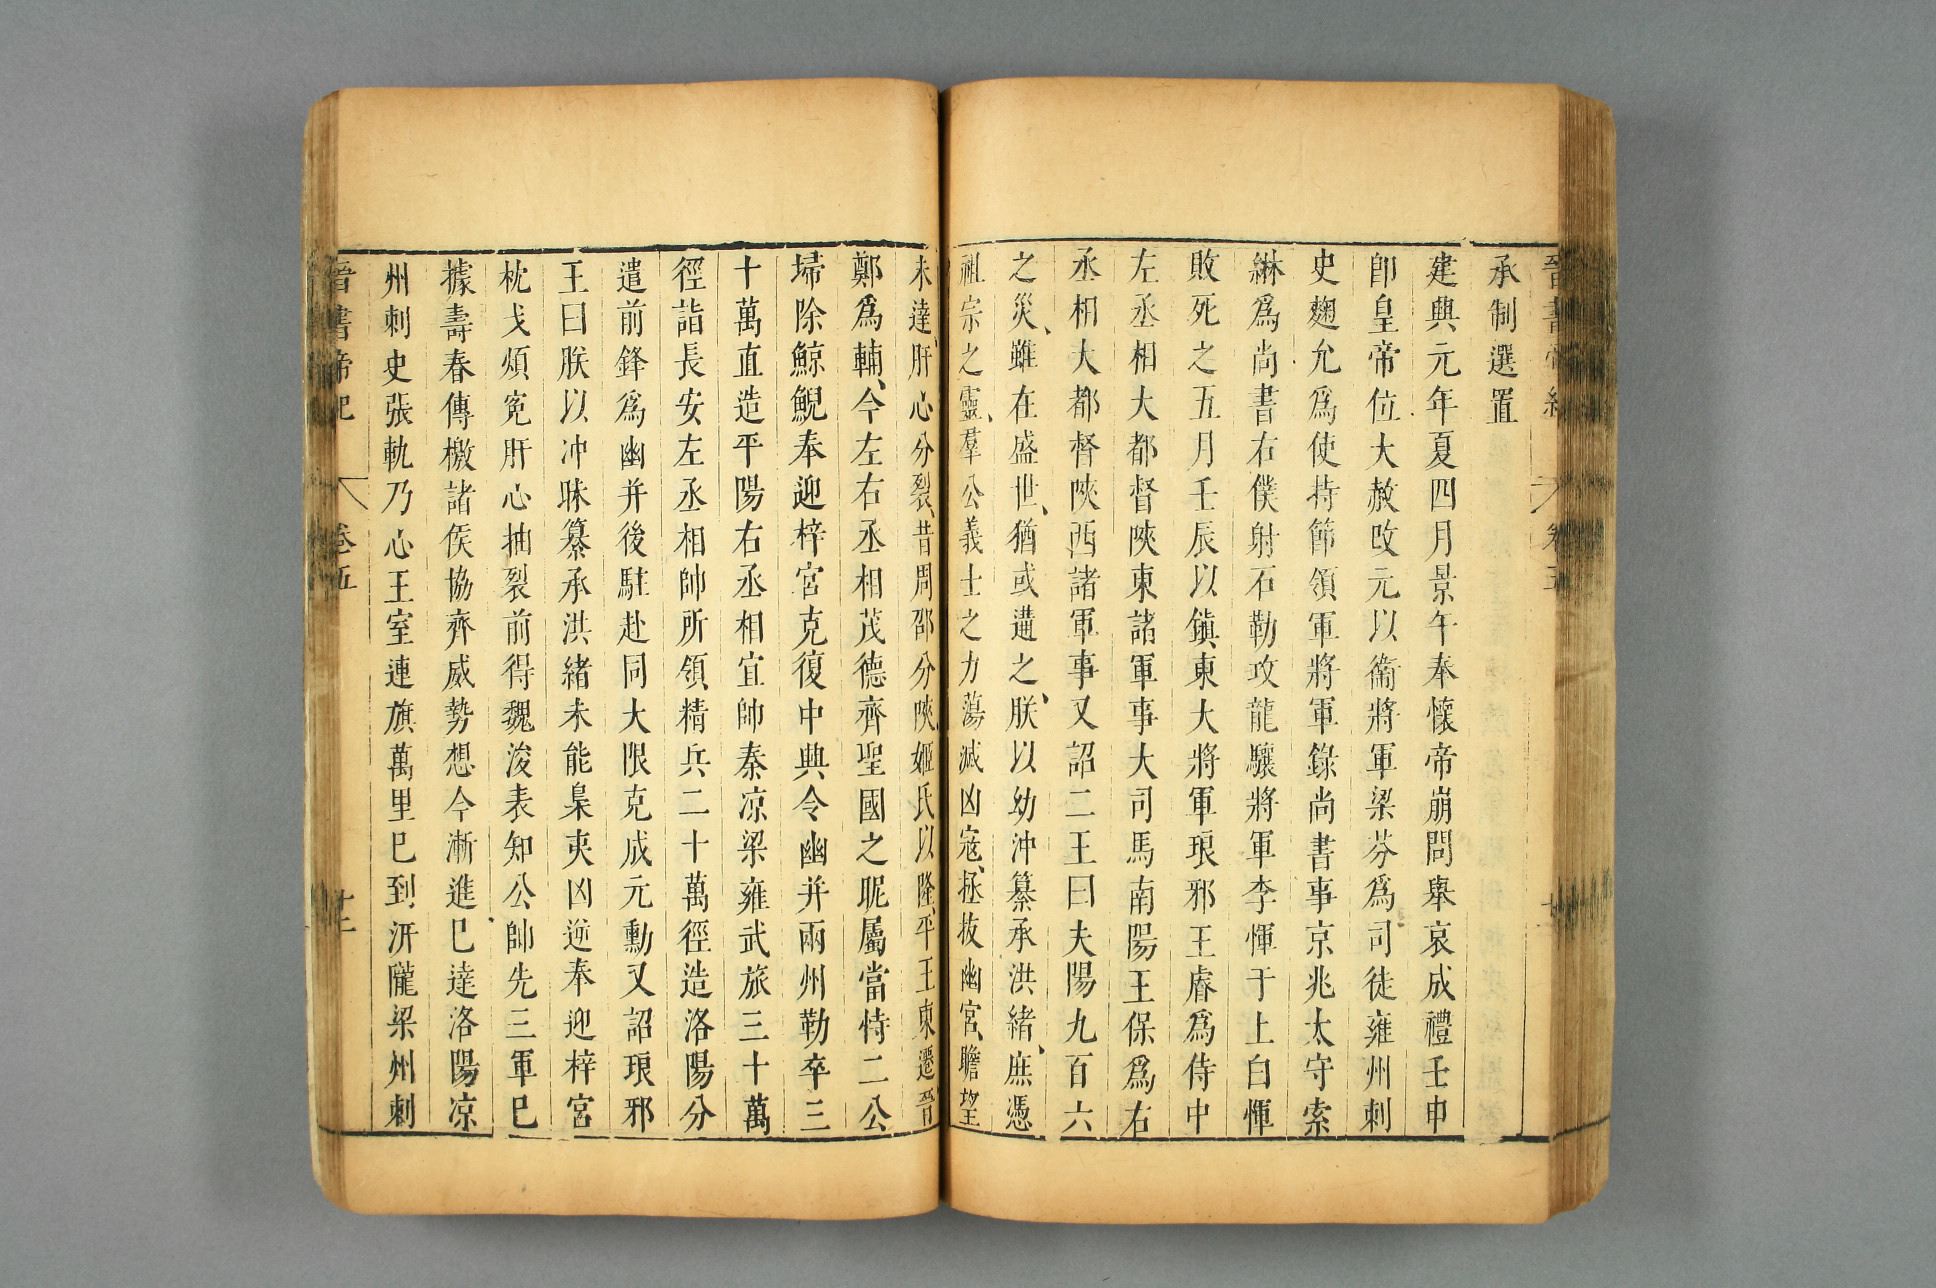 晉書帝紀 卷五
承制選置
建興元年夏四月景午奉懷帝崩問舉哀成禮壬申
卽皇帝位大赦改元以衞將軍梁芬爲司徒雍州刺
史麴允爲使持節領軍將軍錄尚書事京兆太守索
綝爲尚書右僕射石勒攻龍驤將軍李惲于上白惲
敗死之五月壬辰以鎮東大將軍琅邪王睿爲侍中
左丞相大都督陝東諸軍事大司馬南陽王保爲右
丞相大都督陝西諸軍事又詔二王曰夫陽九百六
之災、雖在盛世、猶或遘之、朕以幼沖纂承洪緒、庶憑
祖宗之靈、羣公義士之力蕩滅凶寇、拯拔幽宮、瞻望
未達、肝心分裂、昔周邵分陝、姬氏以隆、平王東遷晉
鄭爲輔、今左右丞相茂德齊聖國之昵屬當恃二公
埽除鯨鯢奉迎梓宮克復中興令幽并兩州勒卒三
十萬直造平陽右丞相宜帥秦凉梁雍武旅三十萬
徑詣長安左丞相帥所領精兵二十萬徑造洛陽分
遣前鋒爲幽并後駐赴同大限克成元勳又詔琅邪
王曰朕以冲昧纂承洪緒未能梟夷凶逆奉迎梓宮
枕戈煩冤肝心抽裂前得魏浚表知公帥先三軍巳
據壽春傳檄諸侯協齊威勢想今漸進巳達洛陽凉
州刺史張軌乃心王室連旗萬里巳到汧隴梁州刺
晉書帝紀 卷五 廿二